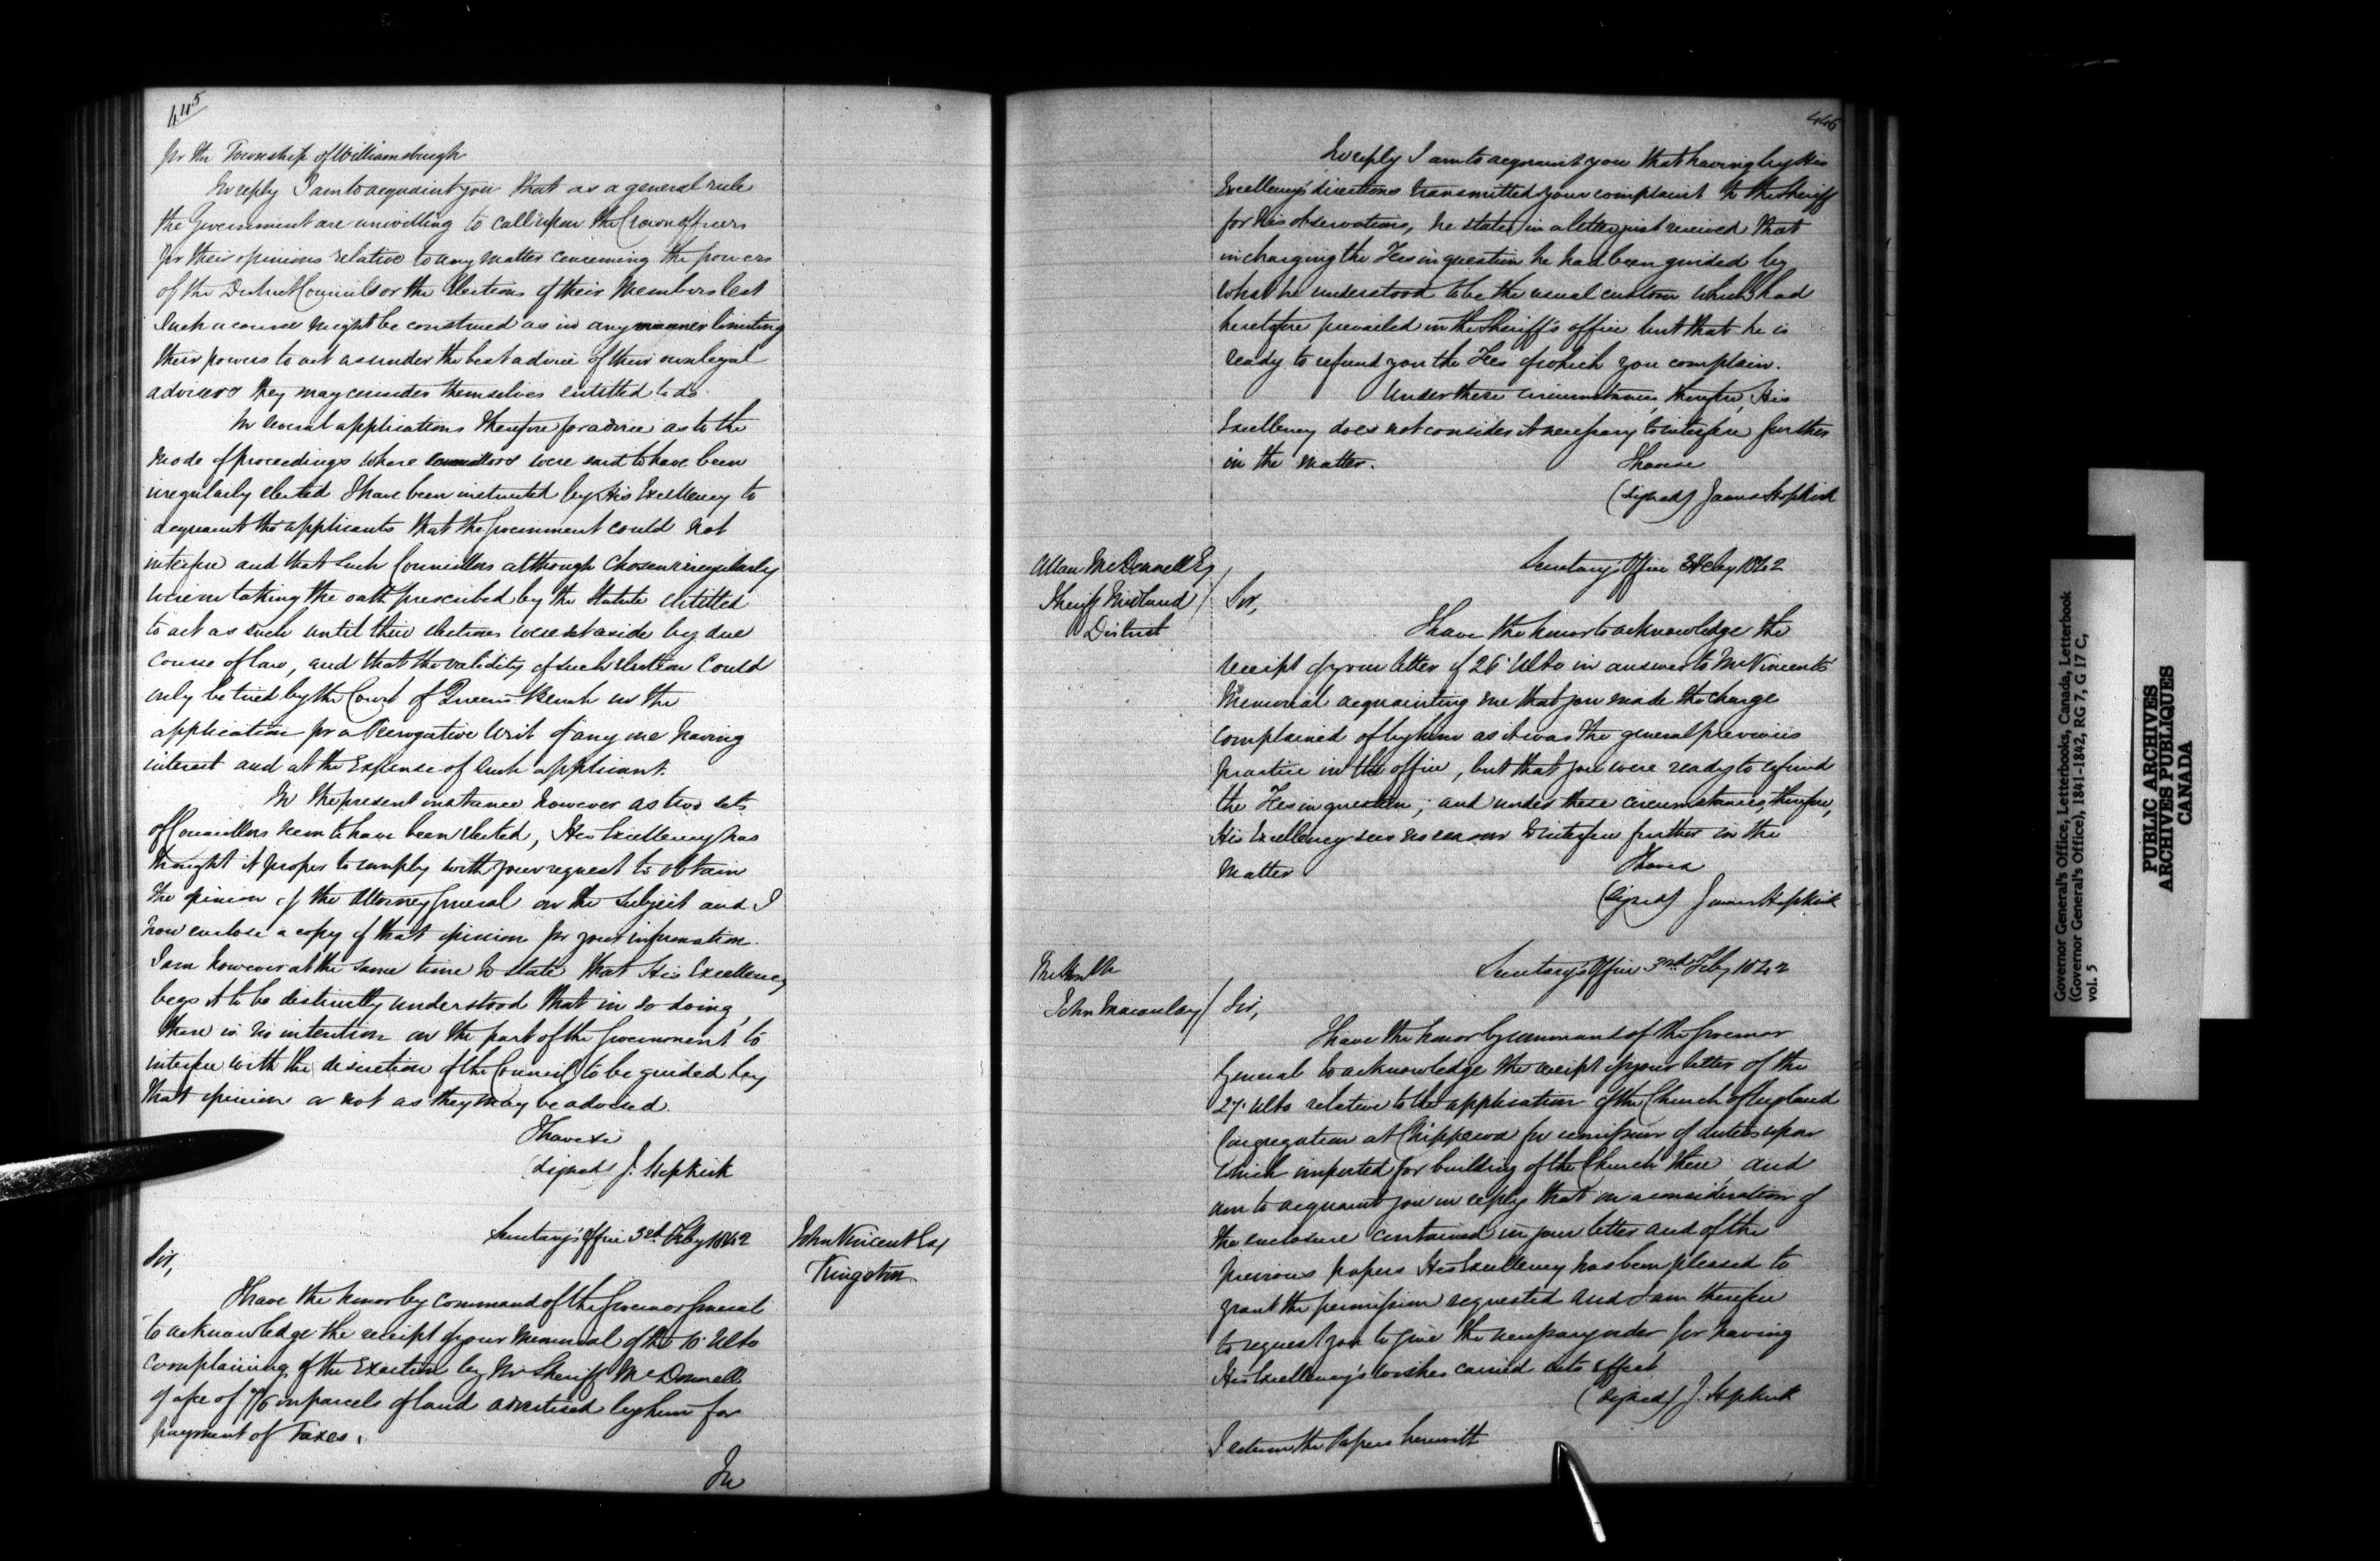 445
for the Township of Williamsburgh
In reply I am to acquaint you that as a general rule
the Government are unwilling to call upon the Crown officers
for their opinions relative to any matter concerning the powers
of the District Councils or the Elections of their Members lest
such a course might be construed as in any manner limiting
their powers to act as under the best advice of their own legal
advisers they may consider themselves entitled to do.
In several applications therefore for advice as to the
mode of proceedings where Councillors were said to have been
irregularly elected I have been instructed by His Excellency to
acquaint the applicants that the Government could not
interfere and that such Councillors although chosen irregularly
were on taking the oath prescribed by the Statute entitled
to act as such until their elections were set aside by due
course of law, and that the validity of such election could
only be tried by the Court of Queen's Bench on the
application for a Prerogative Writ of any one having
interest and at the Expense of such applicant.
In the present instance however as two sets
of Councillors seem to have been elected, His Excellency has
thought it proper to comply with your request to obtain
the opinion of the Attorney General on the subject and I
now enclose a copy of that opinion for your information.
I am however at the same time to state that His Excellency
begs it to be distinctly understood that in so doing,
there is no intention on the part of the Government to
interfere with the discretion of the Council to be guided by
that opinion or not as they may be advised.
I have &c
(signed) J. Hopkirk
Secretary's Office 3rd Feby 1842
John Vincent Esq
Kingston
Sir,
I have the honor by command of the Governor General
to acknowledge the receipt of your Memorial of the 10 Ulto
complaining of the Exaction by Mr Sheriff McDonnell
of a fee of 7/6 on parcels of land advertised by him for
payment of Taxes.
In
446
In reply I am to acquaint you that having by His
Excellency's directions transmitted your complaint to the Sheriff
for his observations, he states in a letter just received that
in charging the Fees in question he had been guided by
what he understood to be the usual custom which had
heretofore prevailed in the Sheriff's office but that he is
ready to refund you the Fees of which you complain.
Under these circumstances, therefore, His
Excellency does not consider it necessary to interfere further
in the matter.
I have &c
(signed) James Hopkirk
Allan McDonnell Esq
Sheriff Midland
District
Secretary's Office 3 Feby 1842
Sir,
I have the honor to acknowledge the
receipt of your letter of 26 Ulto in answer to Mr Vincent's
Memorial acquainting me that you made the charge
complained of by him as it was the general previous
practice in the office, but that you were ready to refund
the Fees in question; and under these circumstances therefore,
His Excellency sees no reason to interfere further in the
matter
I have &c
(signed) James Hopkirk
The Honble
John Macaulay
Secretary's Office 3rd Feby 1842
Sir,
I have the honor by command of the Governor
General to acknowledge the receipt of your letter of the
27 Ulto relative to the application of the Church of England
Congregation at Chippewa for remission of duties upon
which imported for building of the Church there and
am to acquaint you in reply that on a consideration of
the enclosure contained in your letter and of the
previous papers His Excellency has been pleased to
grant the permission requested and I am therefore
to request you to give the necessary order for having
His Excellency's wishes carried into effect
(signed) J. Hopkirk
I return the Papers herewith
Governor General's Office, Letterbooks, Canada, Letterbook
(Governor General's Office), 1841-1842, RG 7, G 17 C,
vol. 5
PUBLIC ARCHIVES
ARCHIVES PUBLIQUES
CANADA